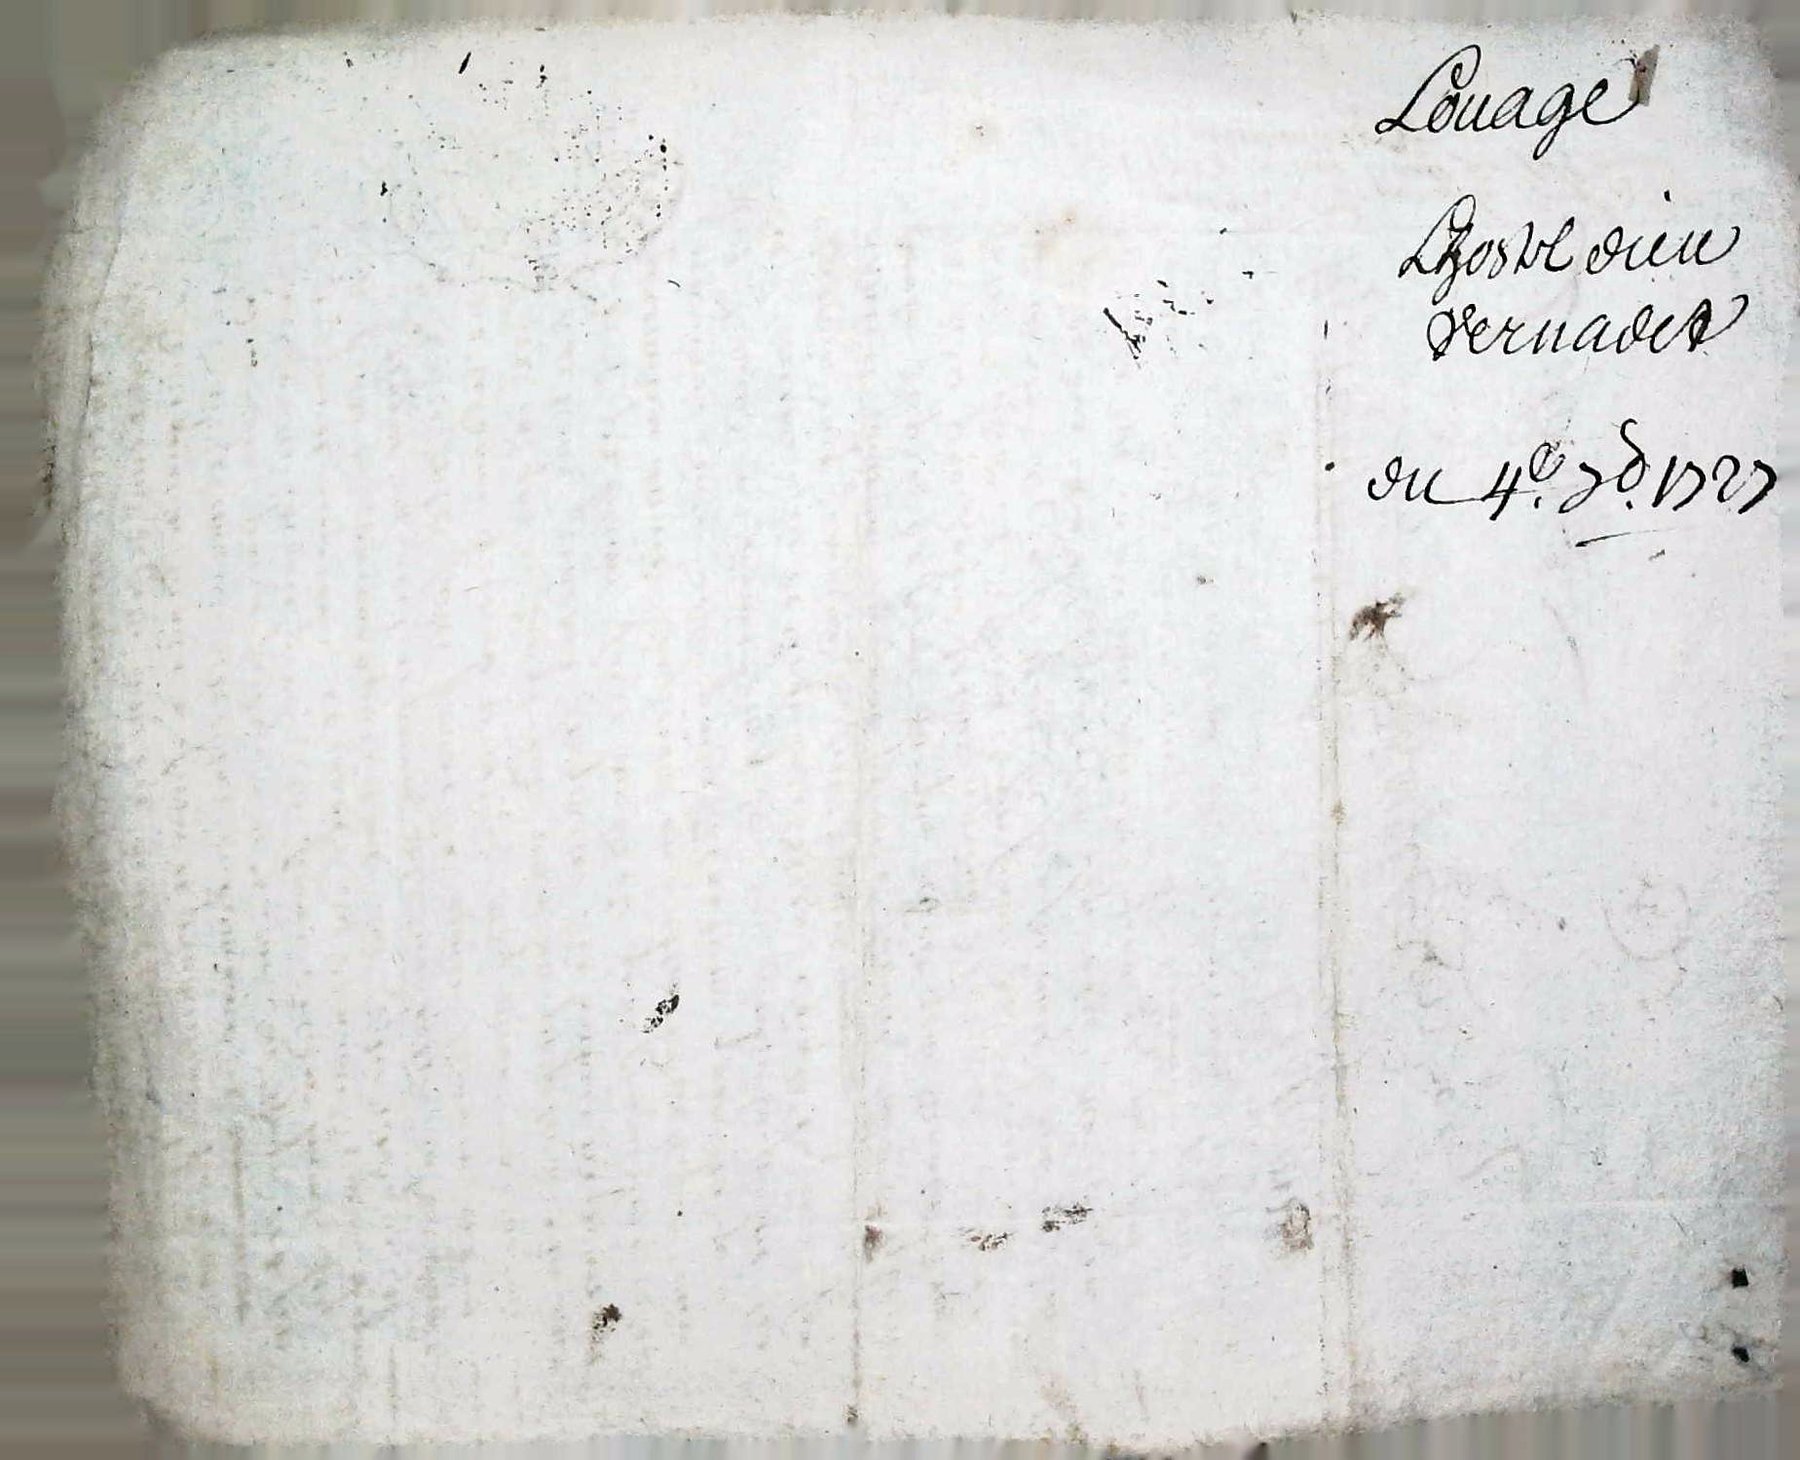 Louage
Lhostel dieu
Vernadet
du 4e. 7b. 1727